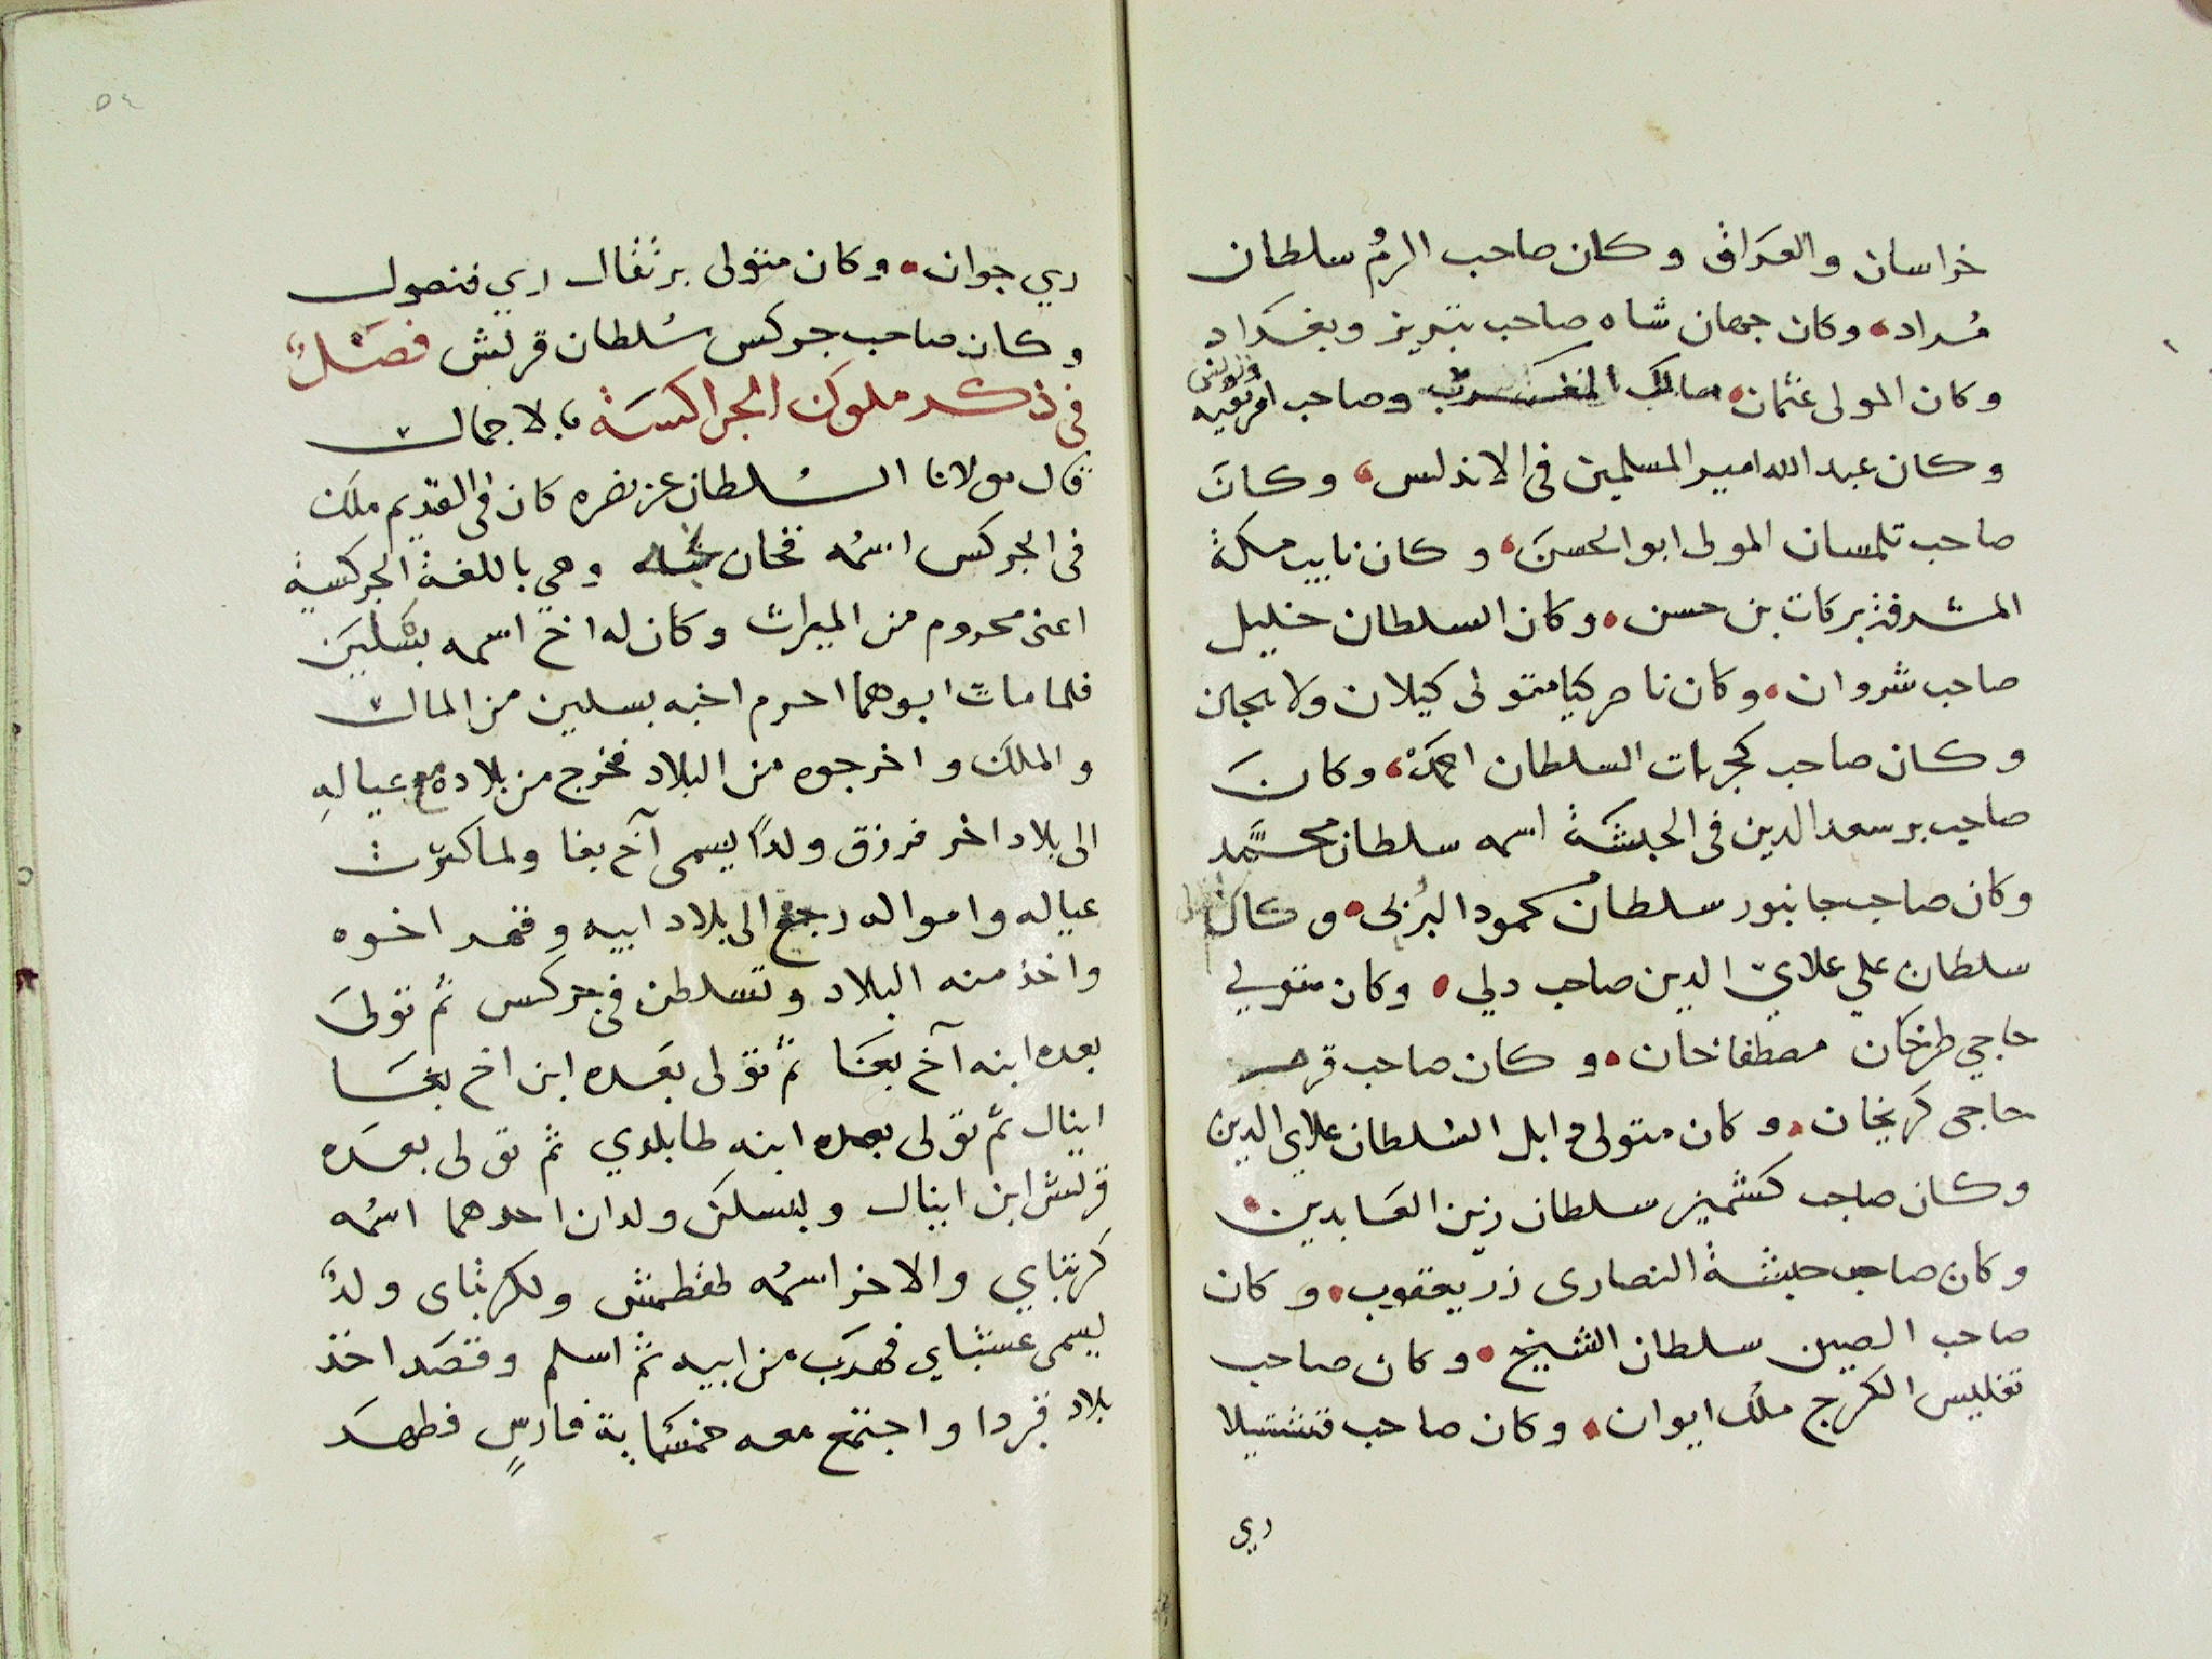 خراسان والعراق وكان صاحب الرم سلطان
مراد، وكان جهان شاه صاحب تبريز وبغداد
وكان المولى عثمان صاحب وصاحب افريقيه وتونس
وكان عبد الله امير المسلمين فى الاندلس، وكان
صاحب تلمسان المولى ابو الحسن، وكان نايب مكة
المشرفة بركات بن حسن، وكان السلطان خليل
صاحب شروان، وكان ناصر كيا متولى كيلان ولايجان
وكان صاحب كجرات السلطان احمد، وكان
صاحب بر سعد الدين فى الحبشة اسمه سلطان محمد
وكان صاحب جانبور سلطان محمود البزبى، وكان
سلطان علي علاي الدين صاحب دلي، وكان متولي
حاجي طرخان مصطفا خان، وكان صاحب قرم
حاجى كريخان، وكان متولى ابل السلطان علاي الدين
وكان صاحب كشمير سلطان زين العابدين،
وكان صاحب حبشة النصارى زريعقوب، وكان
صاحب الصين سلطان الشيخ، وكان صاحب
تفليس الكرج ملك ايوان، وكان صاحب قشتيلا
ري
٥٤
ري جوان، وكان متولى برتقال اري فنصول
وكان صاحب جركس سلطان قريش فصل
فى ذكر ملوك الجراكسة بالاجمال
قال مولانا السلطان عز نصره كان فى القديم ملك
فى الجركس اسمه تخان وهي باللغة الجركسية
اعنى محروم من الميراث وكان له اخ اسمه بسلين
فلما مات ابوهما احرم اخيه بسلين من المال
والملك واخرجوه من البلاد فخرج من بلاده مع عياله
الى بلاد اخر فرزق ولدا يسمى آخ بغا ولما كثرت
عياله وامواله رجع الى بلاد ابيه وقهر اخوه
واخذ منه البلاد وتسلطن فى جركس ثم تولى
بعده ابنه آخ بغا ثم تولى بعده ابن اخ بغا
اينال ثم تولى بعده ابنه طابلدي ثم تولى بعده
قريش ابن اينال وبسلكن ولدان احدهما اسمه
كرتباي والاخر اسمه طقطمش ولكرتباى ولد
يسمى عستباي فهرب من ابيه ثم اسلم وقصد اخذ
بلاد قبردا واجتمع معه خمسماية فارس فظهر